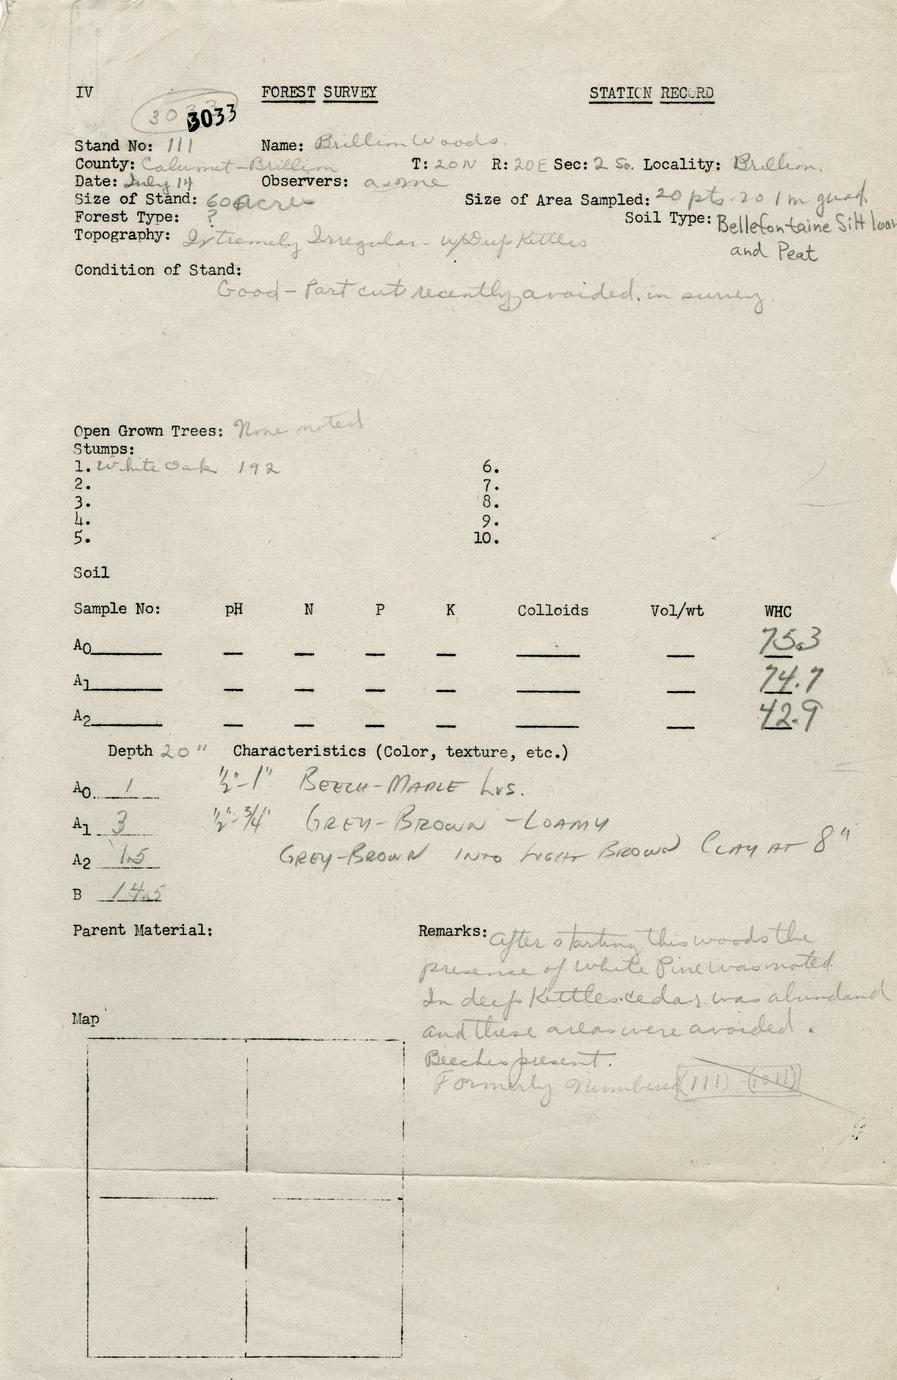 IV FOREST SURVEY STATION RECORD
3033 3033
Stand No: 111 Name: Brillion Woods.
County: Calumet-Brillion T: 20N R: 20E Sec: 2 So. Locality: Brillion.
Date: July 14 Observers:
Size of Stand: 60 acres Size of Area Sampled: 20 pts-20 1m quad.
Forest Type: ? Soil Type: Bellefontaine Silt loam
Topography: Extremely Irregular - w/Deep Kettles and Peat
Condition of Stand:
Good - Part cut recently, avoided in survey.
Open Grown Trees: None noted
Stumps:
1. White Oak 192 6.
2. 7.
3. 8.
4. 9.
5. 10.
Soil
Sample No: pH N P K Colloids Vol/wt WHC
A0 75.3
A1 74.7
A2 42.9
Depth 20" Characteristics (Color, texture, etc.)
A0 1 ½"-1" BEECH-MAPLE LVS.
A1 3 ½"-¾" GREY-BROWN -LOAMY
A2 1.5 GREY-BROWN INTO LIGHT BROWN CLAY AT 8"
B 14.5
Parent Material: Remarks: After starting this woods the
presence of White Pine was noted
In deep Kettles cedar was abundant
Map and these areas were avoided.
Beeches present.
Formerly Numbered (111) (1011)